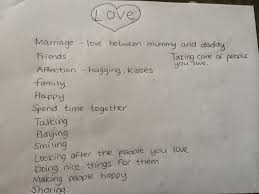 Love
Marriage - love between mummy and daddy
Friends
Taking care of people
you love.
Affection - hugging, kisses
family
Happy
Spend time together
Talking
Playing
Smiling
Looking after the people you love
Doing nice things for them
Making people happy
Sharing